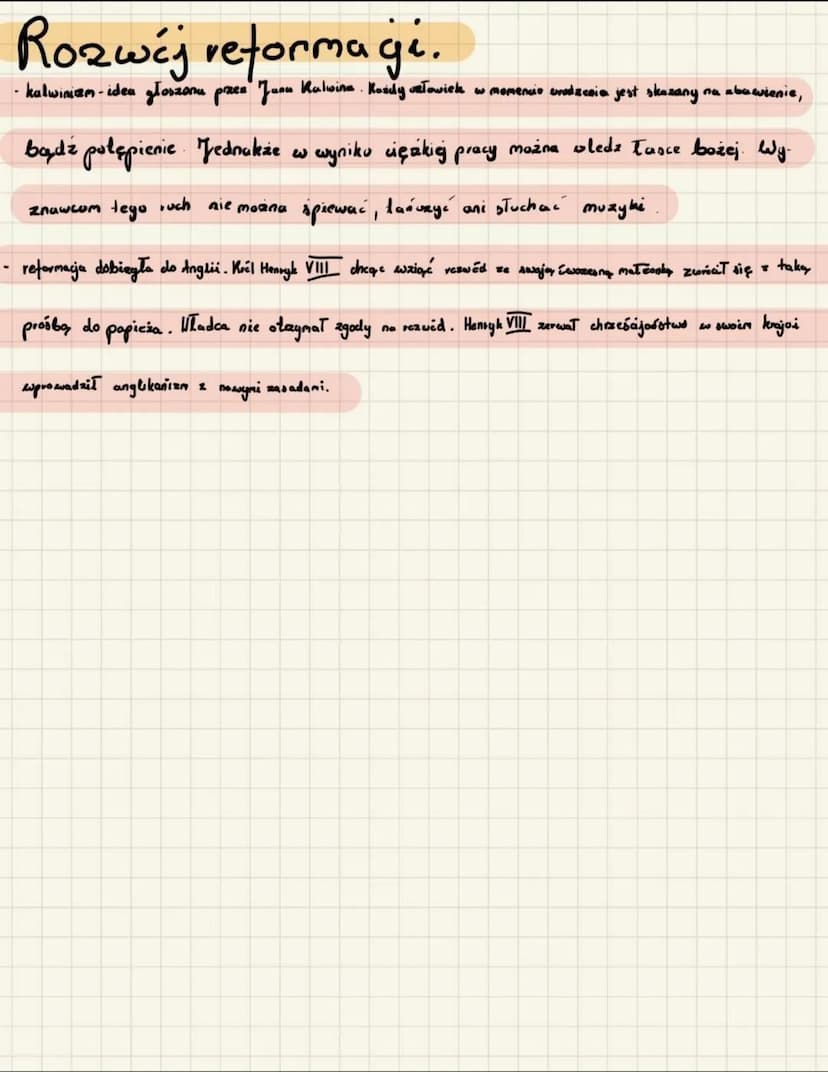 Rozwój reformacji.
- kalwinizm - idea głoszona przez Jana Kalwina. Każdy człowiek w momencie urodzenia jest skazany na zbawienie,
bądź potępienie. Jednakże w wyniku ciężkiej pracy można uledz łasce bożej. Wy-
znawcom tego ruch nie można śpiewać, tańczyć ani słuchać muzyki.
- reformacja dobiegła do Anglii. Król Henryk VIII chcąc wziąć rozwód ze swoją ówczesną małżonką zwrócił się z taką
prośbą do papieża. Władca nie otrzymał zgody na rozwód. Henryk VIII zerwał chrześcijaństwo w swoim kraju i
wprowadził anglikanizm z nowymi zasadami.